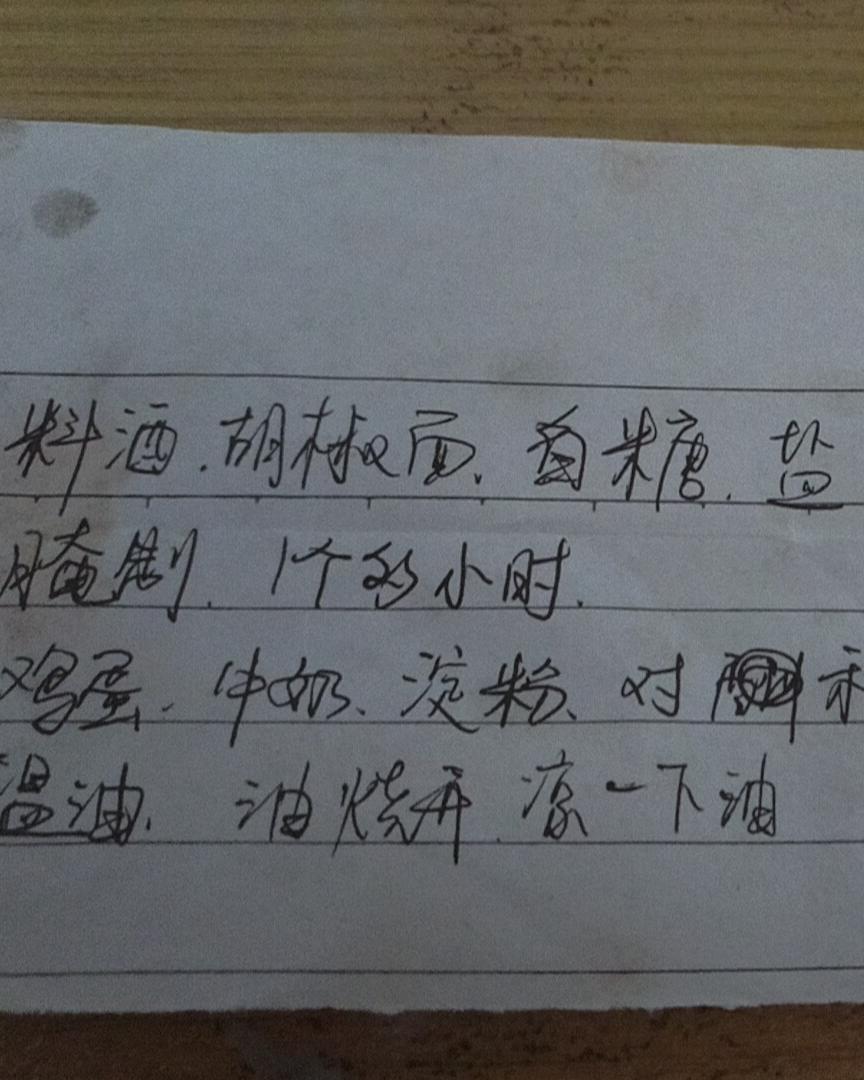 料酒.胡椒面、白糖.盐
腌制.1个多小时.
鸡蛋.牛奶、淀粉、对
温油.油烧开.凉一下油